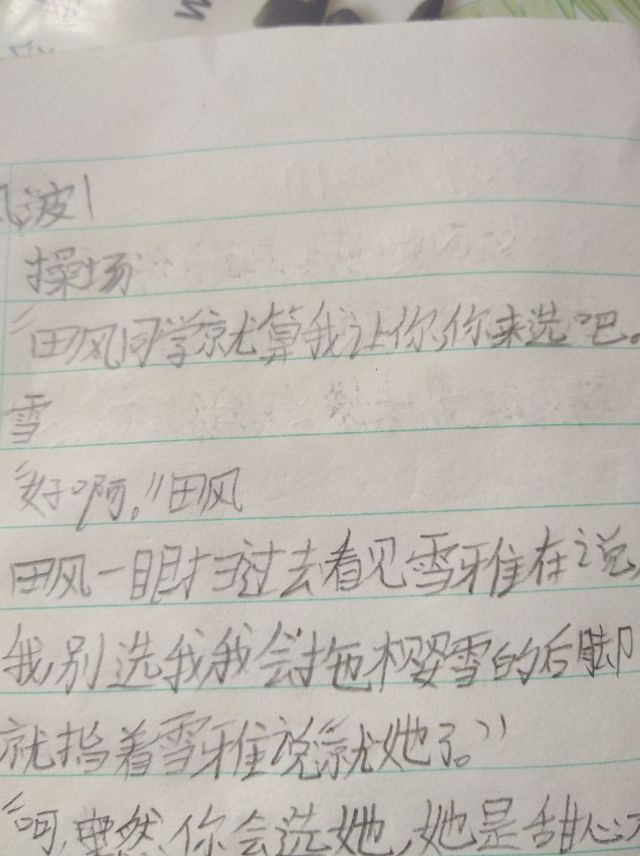 风波1
操场
"田风同学就算我让你,你来选吧。
雪
"好啊。"田风
田风一眼扫过去看见雪雅在说,
我,别选我我会拖樱雪的后脚
就指着雪雅说"就她了。"
"呵,果然,你会选她,她是甜心